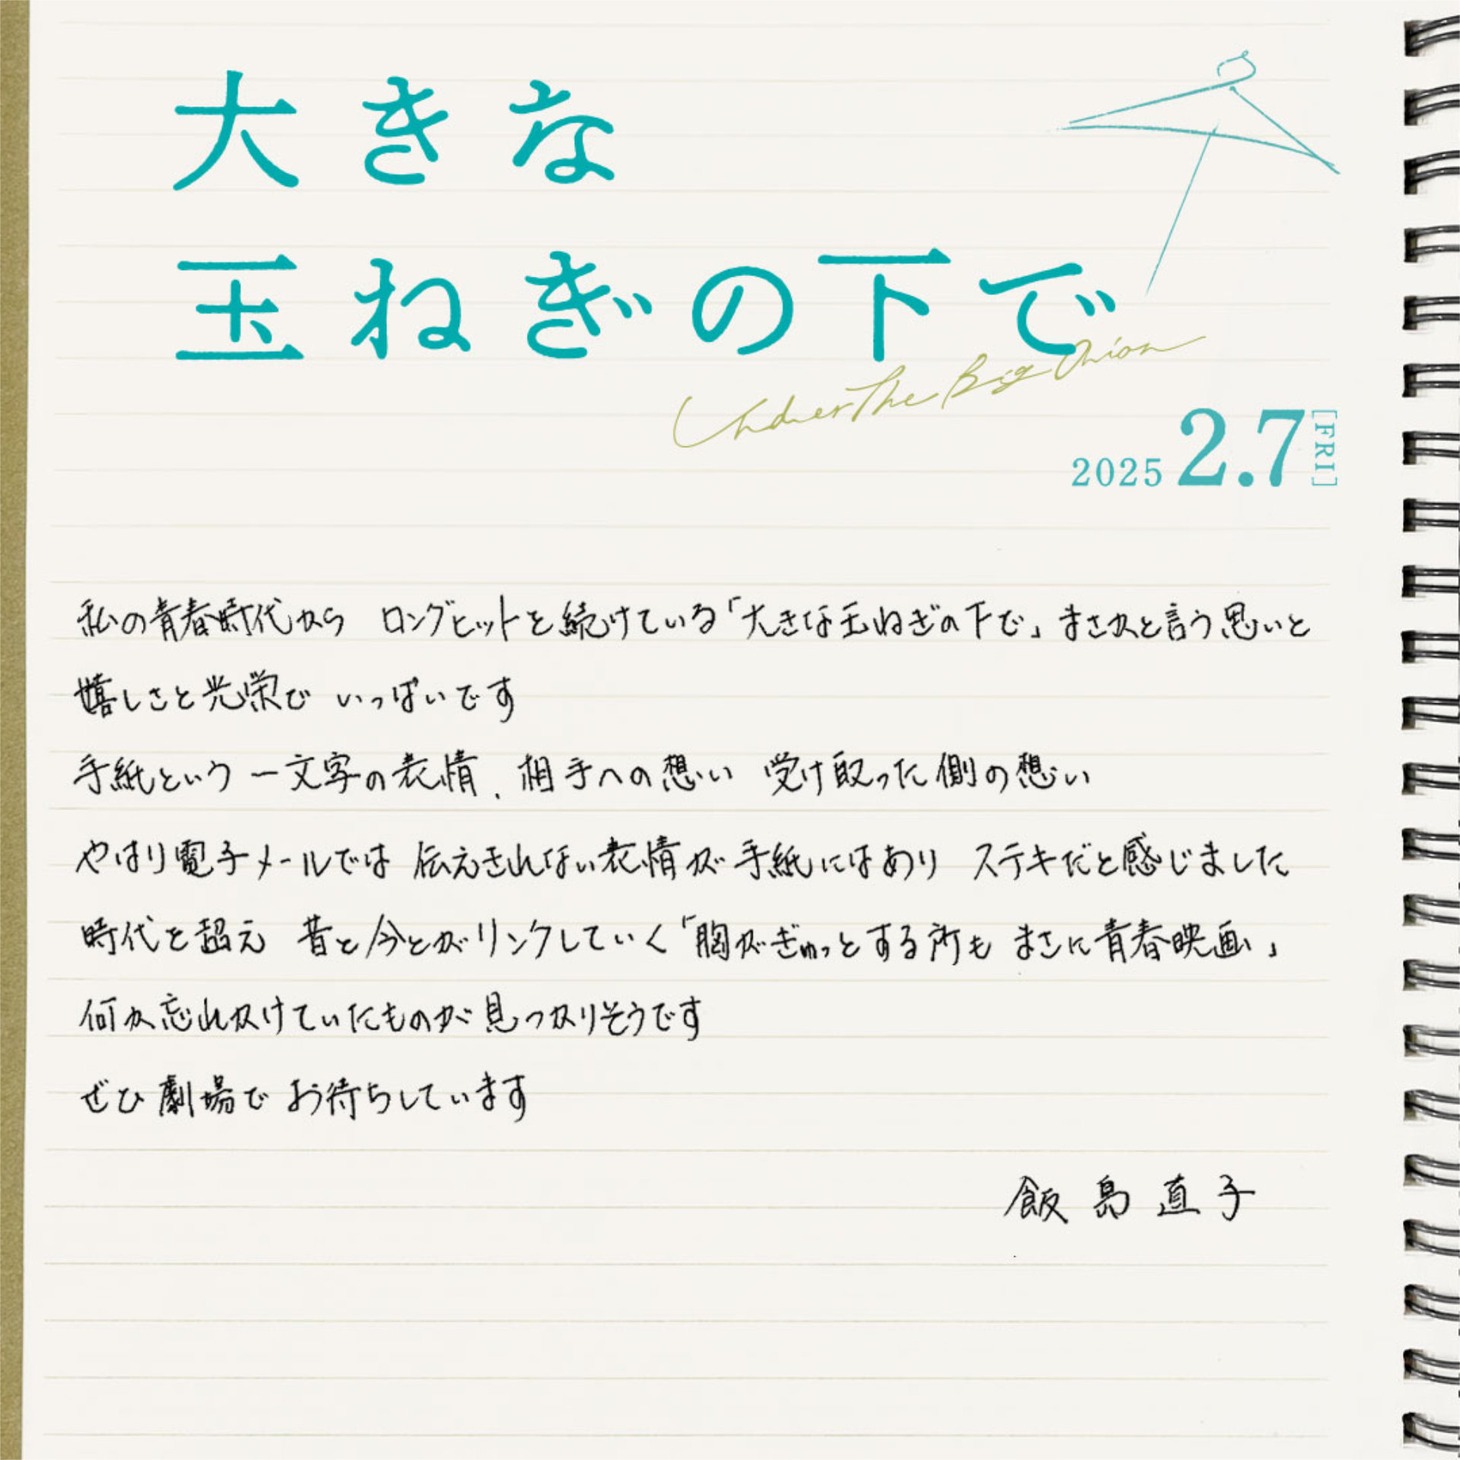 大きな
玉ねぎの下で
Under The Big Onion
2025 2.7 [FRI]
私の青春時代から ロングヒットを続けている「大きな玉ねぎの下で」まさかと言う思いと
嬉しさと光栄で いっぱいです
手紙という 一文字の表情、相手への想い 受け取った側の想い
やはり電子メールでは 伝えきれない表情が手紙にはあり ステキだと感じました
時代を超え 昔と今とがリンクしていく「胸がぎゅっとする所も まさに青春映画」
何か忘れかけていたものが見つかりそうです
ぜひ劇場で お待ちしています
飯島直子